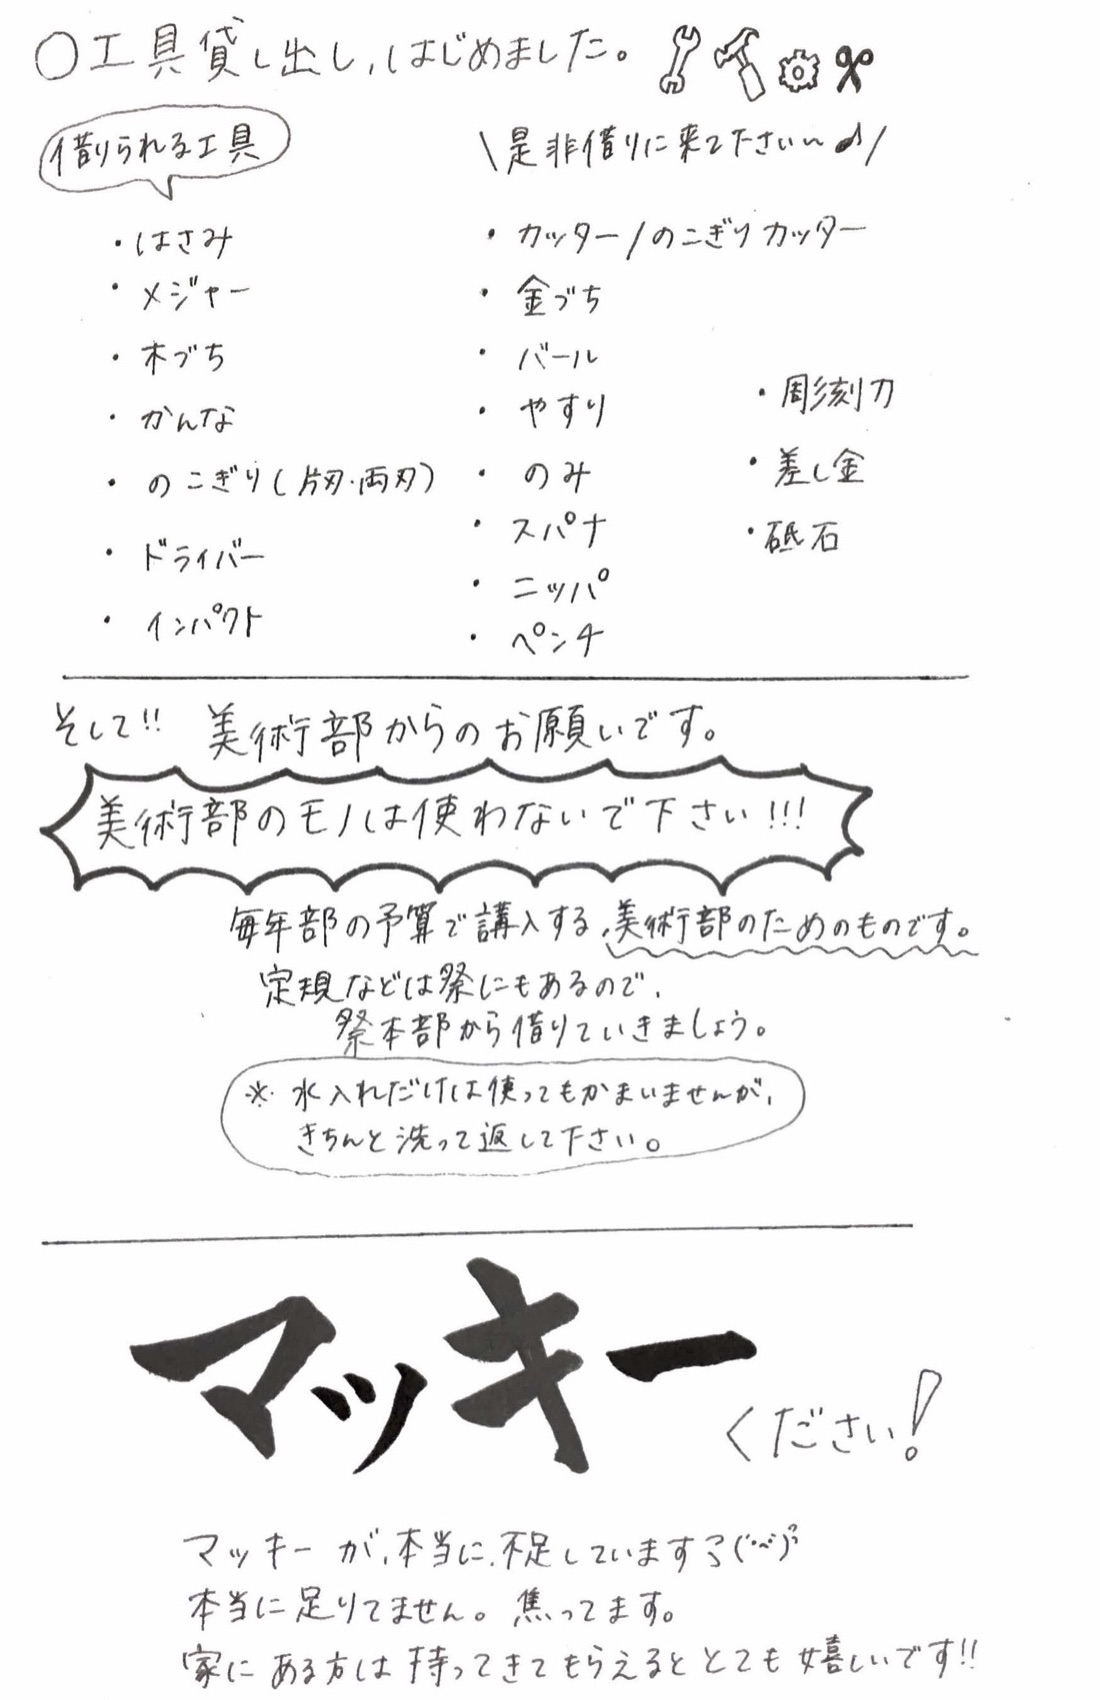 ○工具貸し出し、はじめました。
借りられる工具
\是非借りに来て下さい〜♪/
・はさみ
・メジャー
・木づち
・かんな
・のこぎり(片刃・両刃)
・ドライバー
・インパクト
・カッター/のこぎりカッター
・金づち
・バール
・やすり
・のみ
・スパナ
・ニッパ
・ペンチ
・彫刻刀
・差し金
・砥石
そして!! 美術部からのお願いです。
美術部のモノは使わないで下さい!!!
毎年部の予算で講入する、美術部のためのものです。
定規などは祭にもあるので、
祭本部から借りていきましょう。
※ 水入れだけは使ってもかまいませんが、
きちんと洗って返して下さい。
マッキー
ください!
マッキーが、本当に、不足しています
本当に足りてません。焦ってます。
家にある方は持ってきてもらえるととても嬉しいです!!